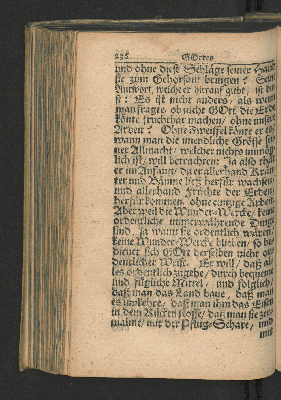 236 GOttes
und ohne diese Schläge seiner Hand
sie zum Gehorsam bringen? Seine
Antwort, welche er hierauf giebt, ist die-
se: Es ist nicht anders, als wenn
man fragte, ob nicht GOtt die Erde
könte fruchtbar machen, ohne unsere
Arbeit? Ohne Zweiffel könte er es,
wann man die unendliche Grösse sei-
ner Allmacht, welcher nichts unmög-
lich ist, will betrachten: ja also that
er im Anfang, da er allerhand Kräu-
ter und Bäume ließ herfür wachsen,
und allerhand Früchte der Erden
herfür kommen, ohne einzige Arbeit.
Aber weil die Wunder-Wercke, keine
ordentliche immerwährende Dinge
sind, ja wann sie ordentlich wären,
keine Wunder-Wercke blieben, so be-
dienet sich GOtt derselben nicht or-
dentlicher Weise. Er will, daß al-
les ordentlich zugehe, durch bequeme
und fügliche Mittel, und folglich,
daß man das Land baue, daß man
es umkehre, daß man ihm das Eisen
in den Rücken stosse, daß man sie zer-
mahne, mit der Pflug-Schare, und
mit